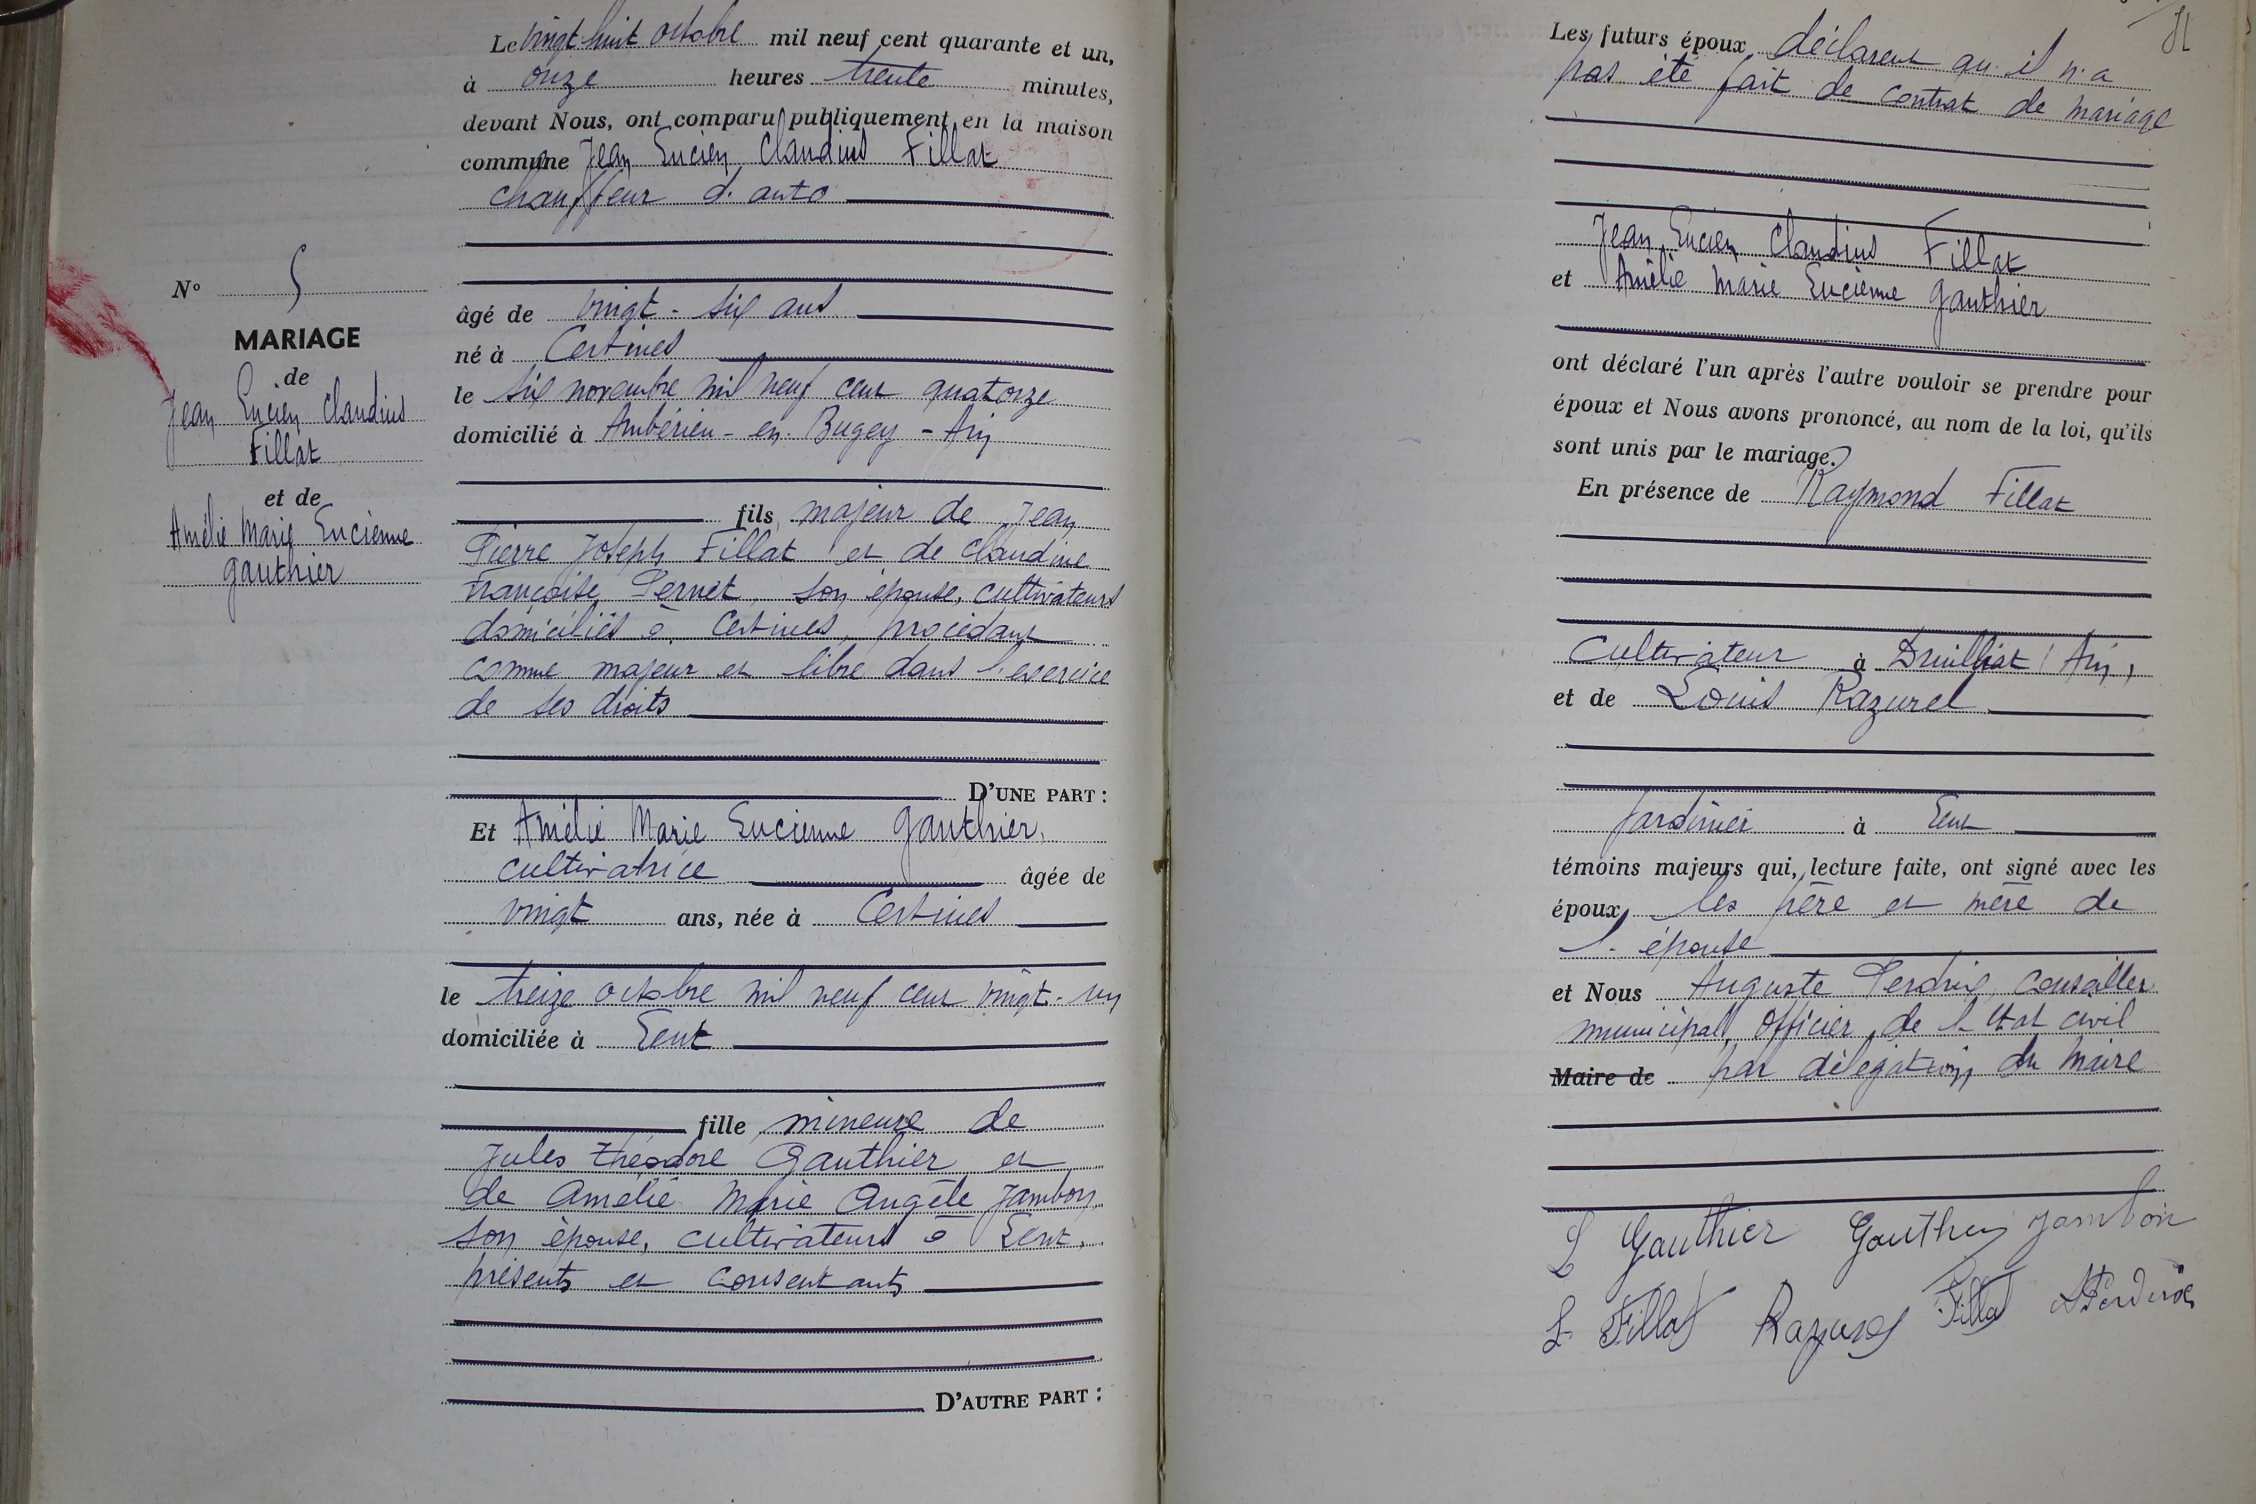 Le vingt huit octobre mil neuf cent quarante et un,
à onze heures trente minutes,
devant Nous, ont comparu publiquement en la maison
commune Jean Lucien Claudius Fillat
chauffeur d'auto
N° 5
MARIAGE
de
Jean Lucien Claudius
Fillat
et de
Amélie Marie Lucienne
Gauthier
âgé de vingt-six ans
né à Certines
le six novembre mil neuf cent quatorze
domicilié à Ambérieu-en-Bugey - Ain
fils majeur de Jean
Pierre Joseph Fillat et de Claudine
Françoise Pernet, son épouse, cultivateurs
domiciliés à Certines, procédant
comme majeur et libre dans l'exercice
de ses droits
D'UNE PART :
Et Amélie Marie Lucienne Gauthier,
cultivatrice âgée de
vingt ans, née à Certines
le treize octobre mil neuf cent vingt-un
domiciliée à Lent
fille mineure de
Jules Théodore Gauthier et
de Amélie Marie Angèle Jambon
son épouse, cultivateurs à Lent,
présents et consentants
D'AUTRE PART :
Les futurs époux déclarent qu'il n'a
pas été fait de contrat de mariage
Jean Lucien Claudius Fillat
et Amélie Marie Lucienne Gauthier
ont déclaré l'un après l'autre vouloir se prendre pour
époux et Nous avons prononcé, au nom de la loi, qu'ils
sont unis par le mariage.
En présence de Raymond Fillat
Cultivateur à Druillat (Ain)
et de Louis Razurel
Jardinier à Lent
témoins majeurs qui, lecture faite, ont signé avec les
époux, les père et mère de
l'épouse
et Nous Auguste Perdrix, conseiller
municipal, Officier de l'état civil
Maire de par délégation du Maire
L Gauthier Gauthier Jambon
L. Fillat Razurel Fillat A Perdrix